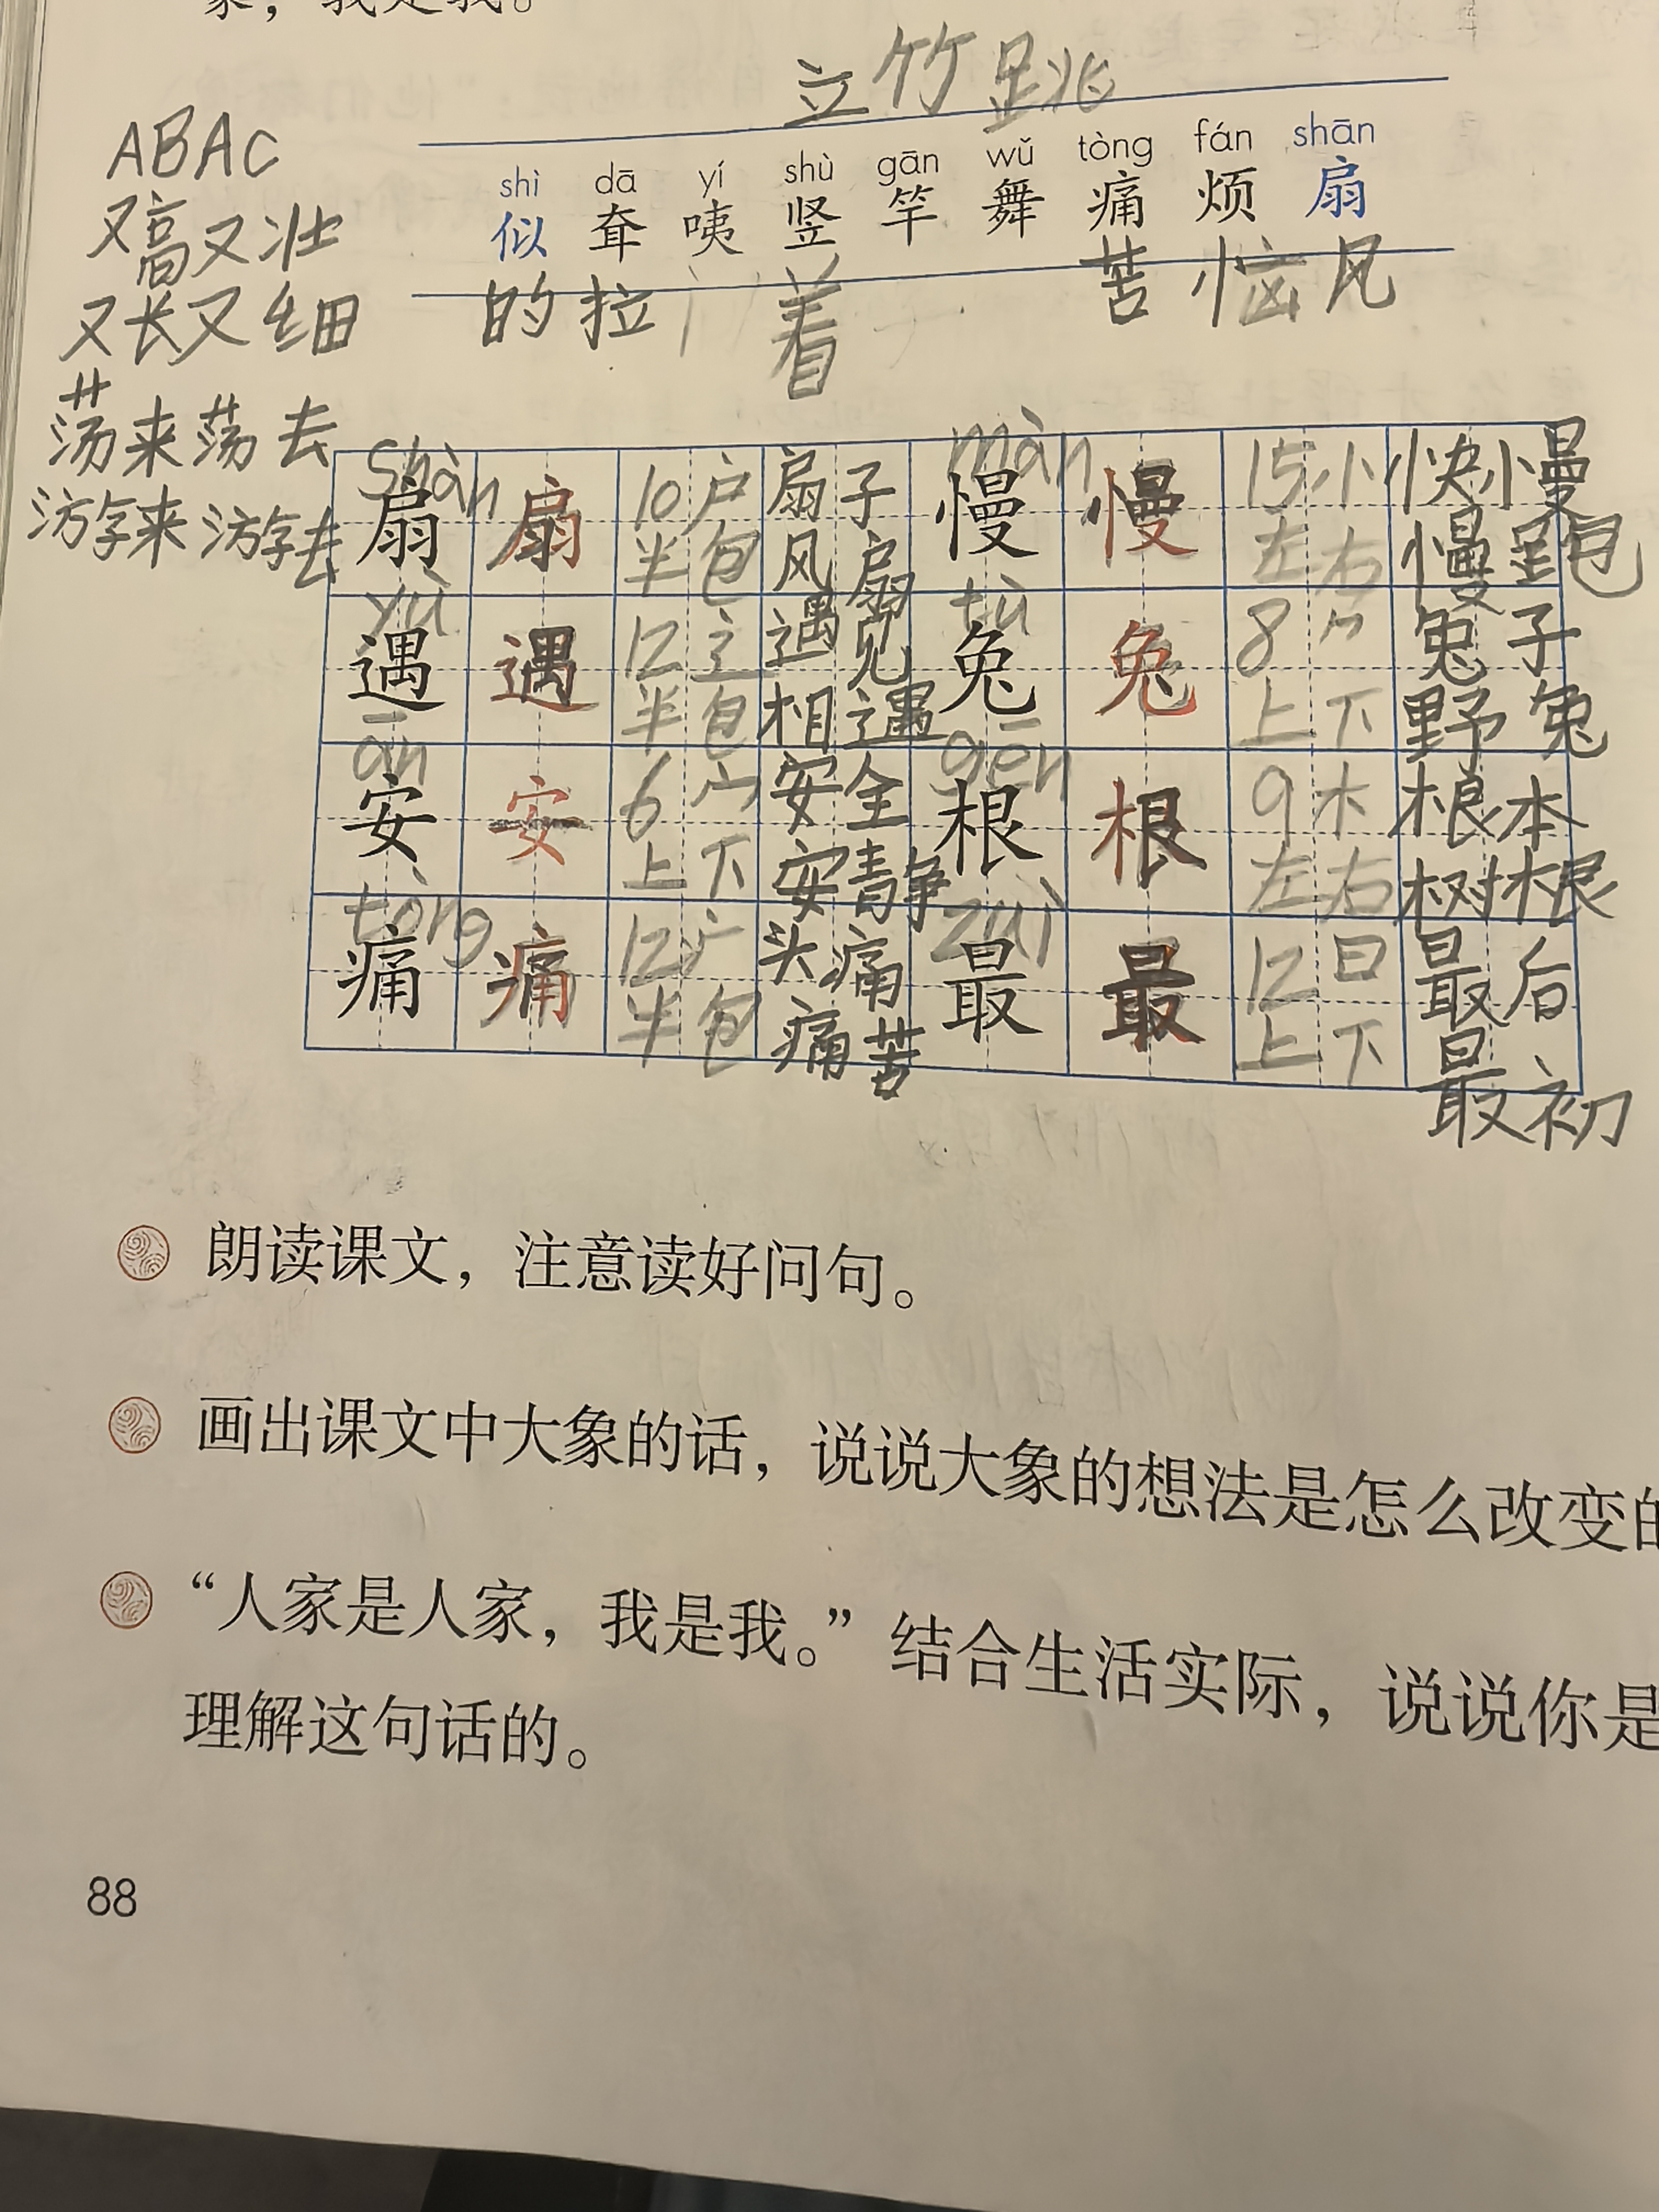 家，我是我。
立竹跳
shì dā yí shù gān wǔ tòng fán shān
似耷咦竖竿舞痛烦扇
的拉 着 苦恼风
ABAC
又高又壮
又长又细
荡来荡去
游来游去
shàn màn
扇 扇 10户 扇子 慢 慢 15忄 快慢
半包 风扇 左右 慢跑
yù tù
遇 遇 12辶 遇见 兔 兔 8⺈ 兔子
半包 相遇 上下 野兔
ān gēn
安 安 6宀 安全 根 根 9木 根本
上下 安静 左右 树根
tòng zuì
痛 痛 12疒 头痛 最 最 12曰 最后
半包 痛苦 上下 最初
朗读课文，注意读好问句。
画出课文中大象的话，说说大象的想法是怎么改变的
“人家是人家，我是我。”结合生活实际，说说你是
理解这句话的。
88